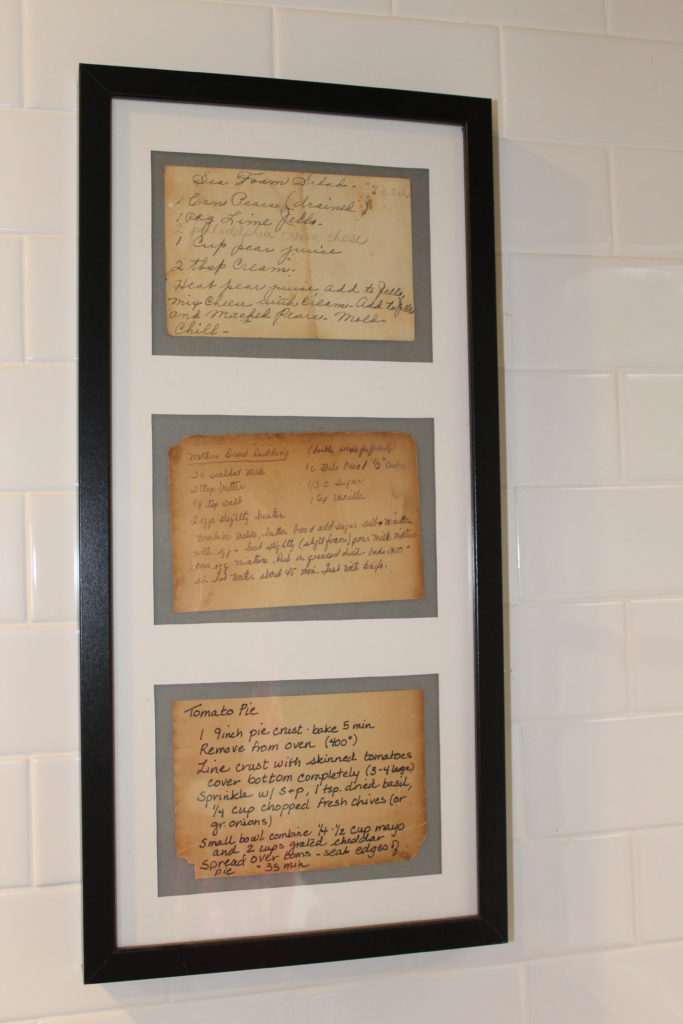 Sea Foam Salad -
1 Can Pears (drained)
1 Pkg Lime Jello.
2 Philadelphia cream cheese
1 Cup pear juice
2 tbsp Cream.
Heat pear juice, add to Jello,
mix Cheese with Cream - Add to Jello
and Mashed Pears - Mold -
Chill -
Mothers Bread Pudding (double recipe for family)
2 c scalded milk 1 c stale bread ½" cubes
2 tbsp butter 1/3 c sugar
¼ tsp salt 1 tsp vanilla
2 eggs slightly beaten
Combine milk, butter bread add sugar salt
with egg - beat slightly (slight foam) pour milk mixture
over egg mixture. Put in greased dish - bake 350°
in hot water about 45 min. Test with knife.
Tomato Pie
1 9inch pie crust - bake 5 min
Remove from oven (400°)
Line crust with skinned tomatoes
cover bottom completely (3-4 large)
Sprinkle w/ s+p, 1 tsp. dried basil,
¼ cup chopped fresh chives (or
gr. onions)
Small bowl combine ¼-½ cup mayo
and 2 cups grated cheddar
Spread over toms - seal edges
pie - 35 min